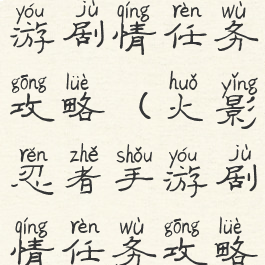 yóu jù qíng rèn wù
游剧情任务
gōng lüè huǒ yǐng
攻略(火影
rěn zhě shǒu yóu jù
忍者手游剧
qíng rèn wù gōng lüè
情任务攻略